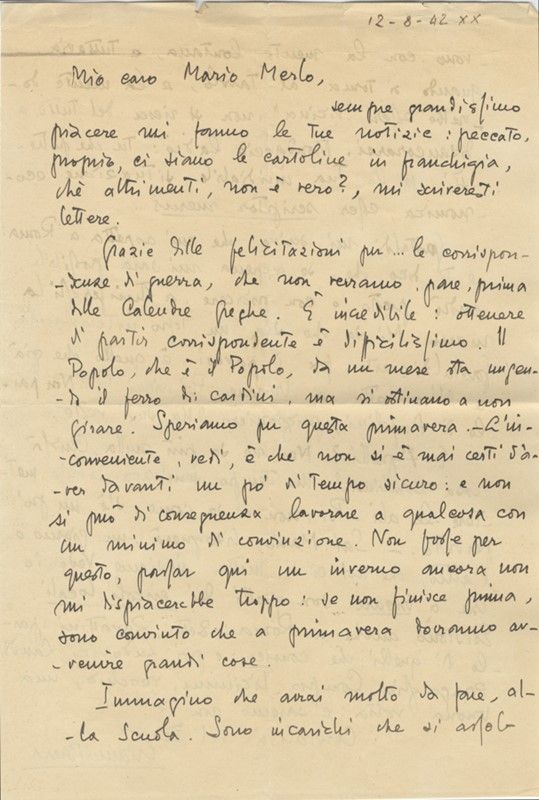 12-8-42 XX
Mio caro Mario Merlo,
sempre grandissimo
piacere mi fanno le tue notizie: peccato,
proprio, ci siano le cartoline in franchigia,
chè altrimenti, non è vero?, mi scriveresti
lettere.
Grazie delle felicitazioni per... le corrispon-
-denze di guerra, che non verranno, pare, prima
delle Calende greghe. È incredibile: ottenere
di partir corrispondente è dificilissimo. Il
Popolo, che è il Popolo, da un mese sta ungen-
-do il ferro di cardini, ma si ostinano a non
girare. Speriamo per questa primavera. - L'in-
-conveniente, vedi, è che non si è mai certi d'a-
-ver davanti un po' di tempo sicuro: e non
si può di conseguenza lavorare a qualcosa con
un minimo di convinzione. Non fosse per
questo, passar qui un inverno ancora non
mi dispiacerebbe troppo: se non finisce prima,
sono convinto che a primavera dovranno av-
-venire grandi cose.
Immagino che avrai molto da fare, al-
-la Scuola. Sono incarichi che si assol-